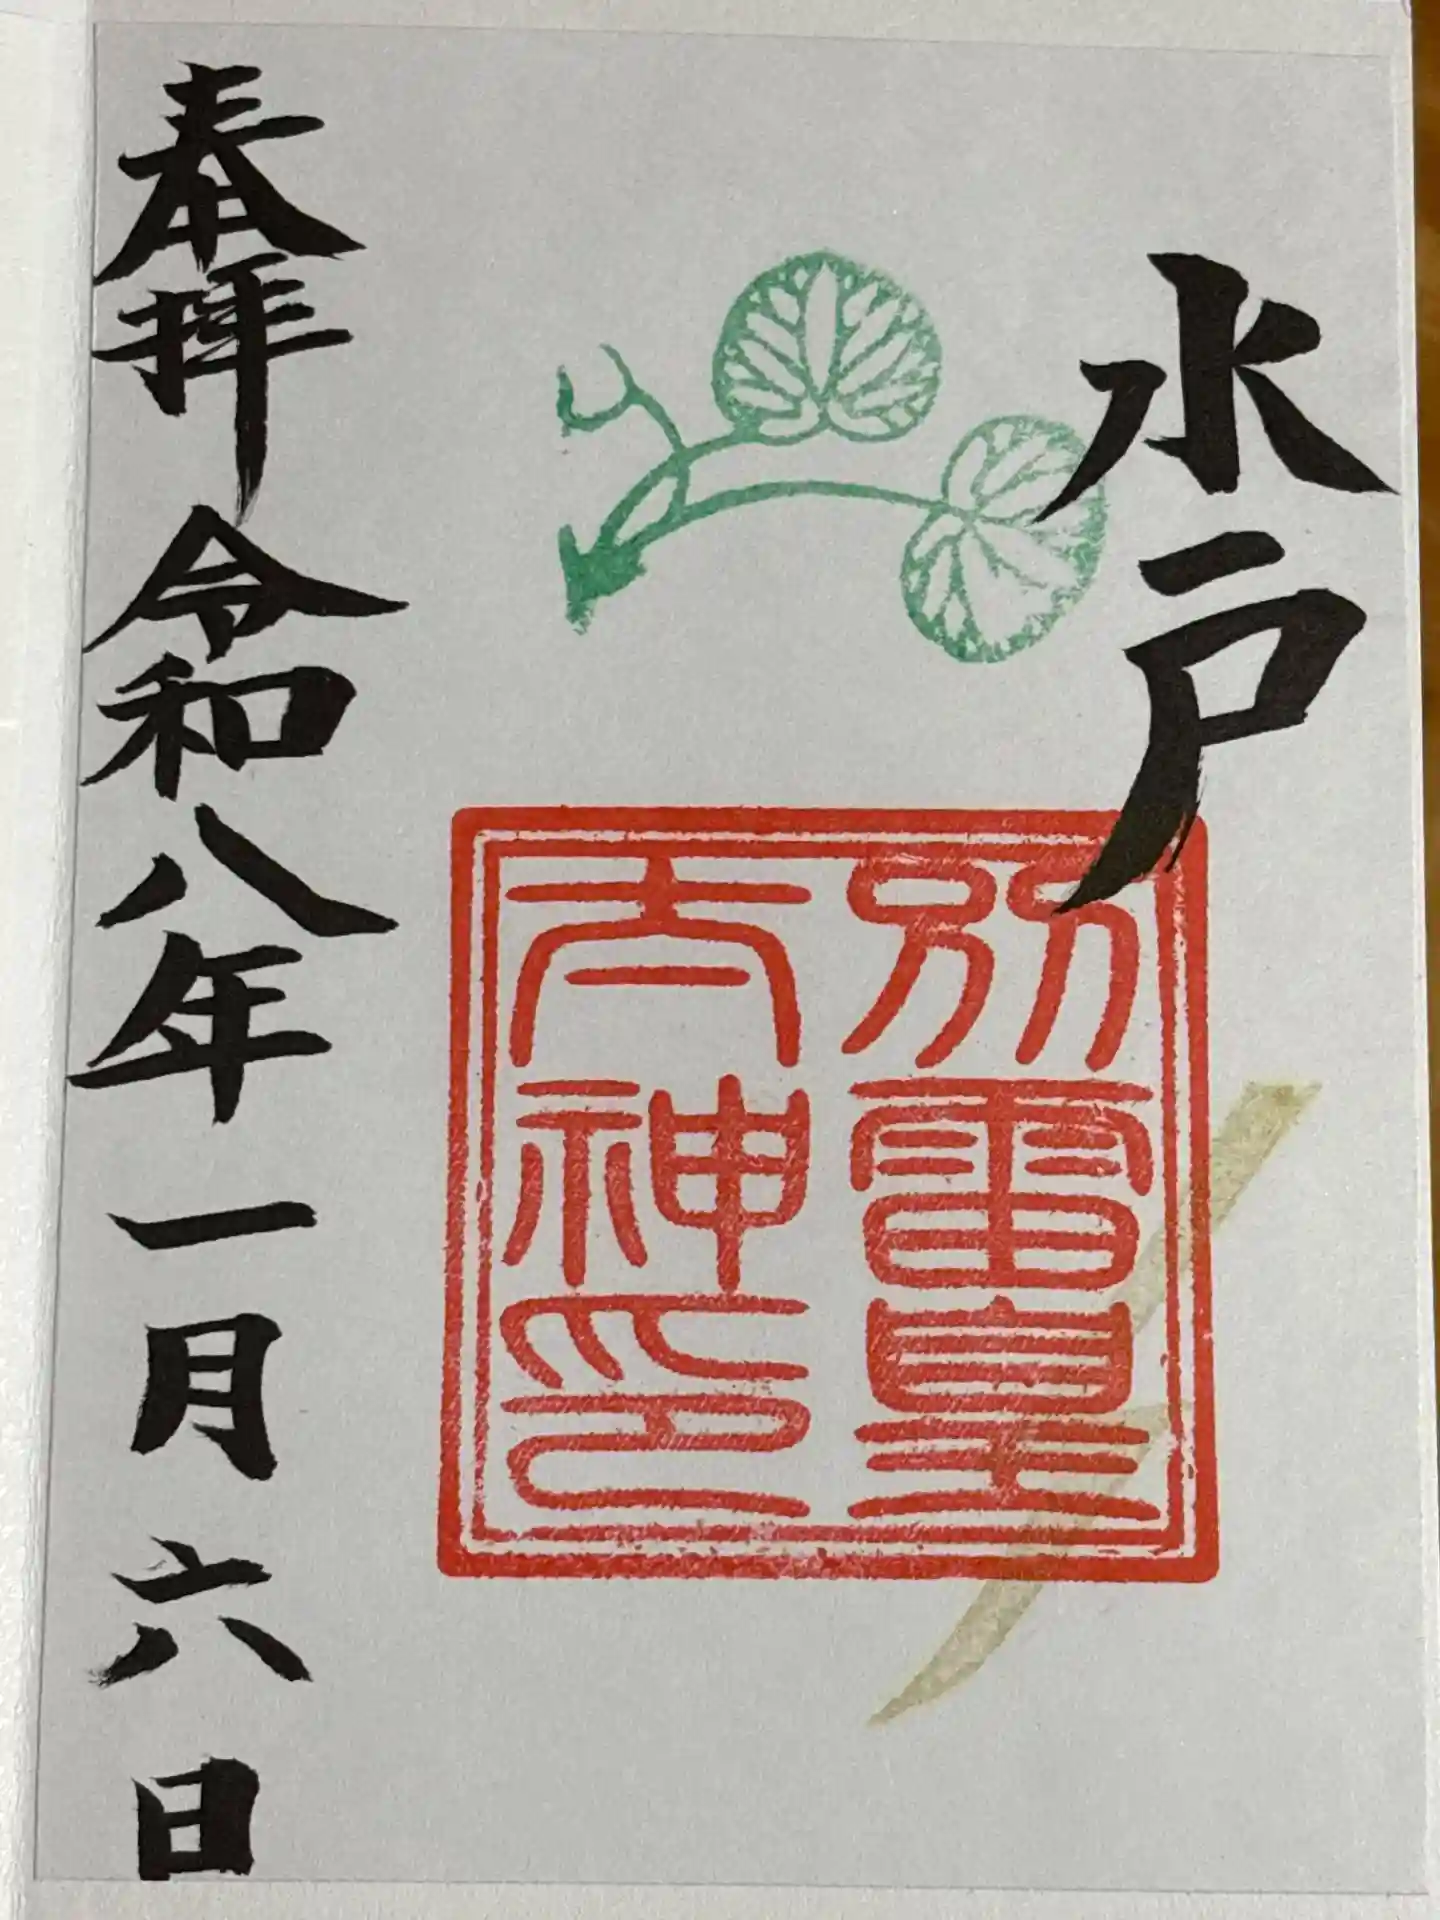 水戸
別雷皇
太神印
奉拝 令和八年一月六日